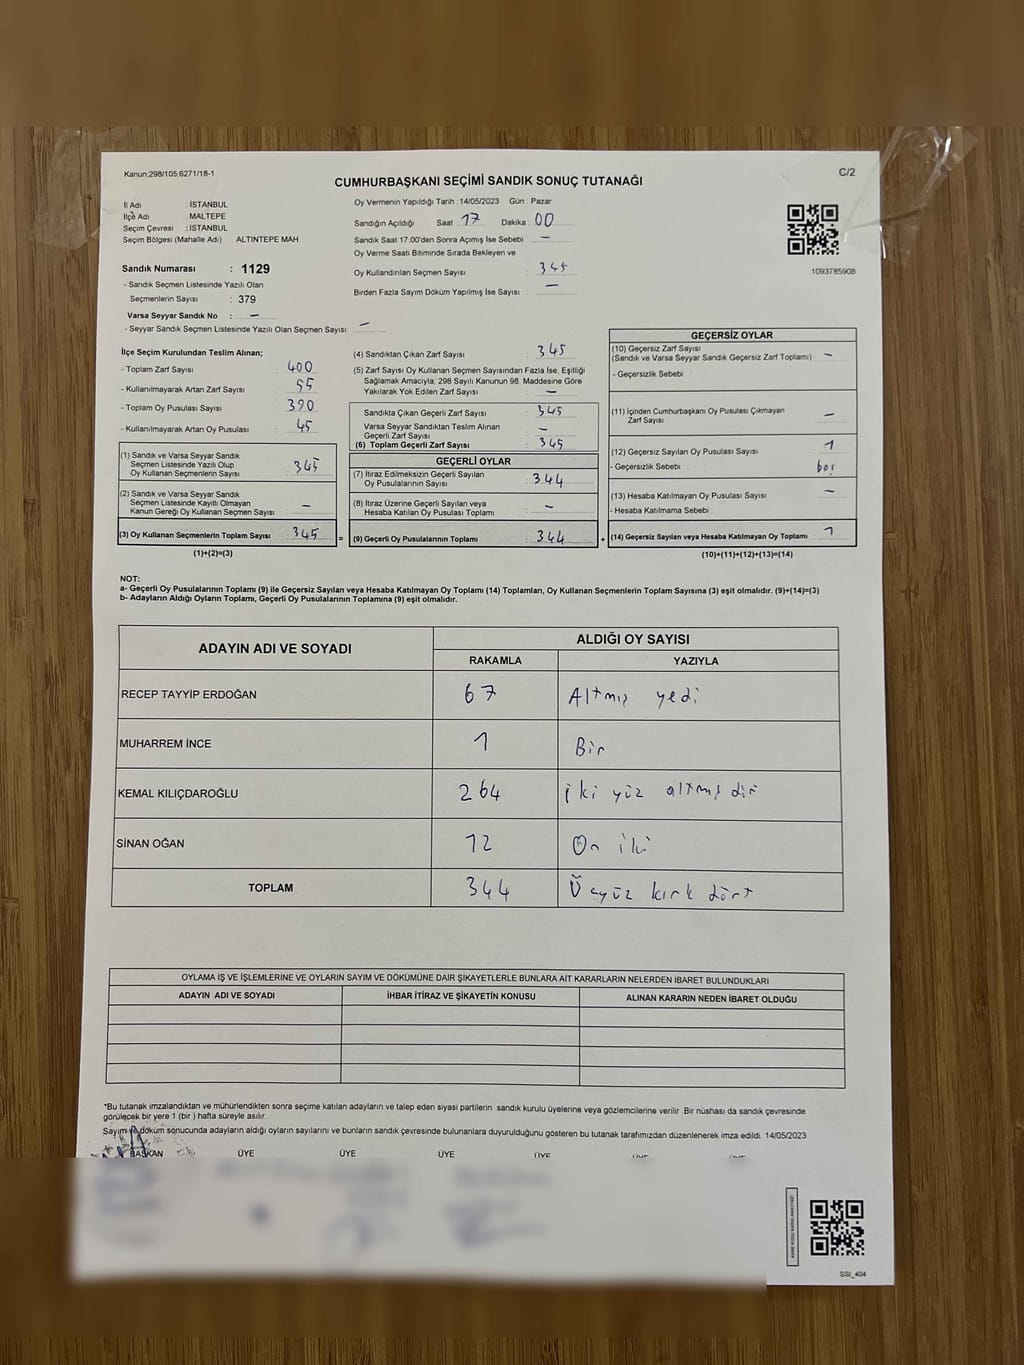 Kanun;298/105;6271/18-1
C/2
CUMHURBAŞKANI SEÇİMİ SANDIK SONUÇ TUTANAĞI
İl Adı : İSTANBUL
İlçe Adı : MALTEPE
Seçim Çevresi : İSTANBUL
Seçim Bölgesi (Mahalle Adı) : ALTINTEPE MAH
Sandık Numarası : 1129
- Sandık Seçmen Listesinde Yazılı Olan
Seçmenlerin Sayısı : 379
Varsa Seyyar Sandık No : –
- Seyyar Sandık Seçmen Listesinde Yazılı Olan Seçmen Sayısı: –
Oy Vermenin Yapıldığı Tarih : 14/05/2023 Gün : Pazar
Sandığın Açıldığı Saat : 17 Dakika : 00
Sandık Saat 17:00'den Sonra Açımış İse Sebebi : –
Oy Verme Saati Bitiminde Sırada Bekleyen ve
Oy Kullandırılan Seçmen Sayısı : 345
Birden Fazla Sayım Döküm Yapılmış İse Sayısı : –
1093785908
İlçe Seçim Kurulundan Teslim Alınan;
- Toplam Zarf Sayısı : 400
- Kullanılmayarak Artan Zarf Sayısı : 55
- Toplam Oy Pusulası Sayısı : 390
- Kullanılmayarak Artan Oy Pusulası : 45
(1) Sandık ve Varsa Seyyar Sandık
Seçmen Listesinde Yazılı Olup
Oy Kullanan Seçmenlerin Sayısı : 345
(2) Sandık ve Varsa Seyyar Sandık
Seçmen Listesinde Kayıtlı Olmayan
Kanun Gereği Oy Kullanan Seçmen Sayısı : –
(3) Oy Kullanan Seçmenlerin Toplam Sayısı : 345
(1)+(2)=(3)
(4) Sandıktan Çıkan Zarf Sayısı : 345
(5) Zarf Sayısı Oy Kullanan Seçmen Sayısından Fazla İse, Eşitliği
Sağlamak Amacıyla; 298 Sayılı Kanunun 98. Maddesine Göre
Yakılarak Yok Edilen Zarf Sayısı : –
Sandıkta Çıkan Geçerli Zarf Sayısı : 345
Varsa Seyyar Sandıktan Teslim Alınan
Geçerli Zarf Sayısı : –
(6) Toplam Geçerli Zarf Sayısı : 345
GEÇERLİ OYLAR
(7) İtiraz Edilmeksizin Geçerli Sayılan
Oy Pusulalarının Sayısı : 344
(8) İtiraz Üzerine Geçerli Sayılan veya
Hesaba Katılan Oy Pusulası Toplamı : –
= (9) Geçerli Oy Pusulalarının Toplamı : 344
GEÇERSİZ OYLAR
(10) Geçersiz Zarf Sayısı
(Sandık ve Varsa Seyyar Sandık Geçersiz Zarf Toplamı) : –
- Geçersizlik Sebebi :
(11) İçinden Cumhurbaşkanı Oy Pusulası Çıkmayan
Zarf Sayısı : –
(12) Geçersiz Sayılan Oy Pusulası Sayısı : 1
- Geçersizlik Sebebi : boş
(13) Hesaba Katılmayan Oy Pusulası Sayısı : –
- Hesaba Katılmama Sebebi :
+ (14) Geçersiz Sayılan veya Hesaba Katılmayan Oy Toplamı : 1
(10)+(11)+(12)+(13)=(14)
NOT:
a- Geçerli Oy Pusulalarının Toplamı (9) ile Geçersiz Sayılan veya Hesaba Katılmayan Oy Toplamı (14) Toplamları, Oy Kullanan Seçmenlerin Toplam Sayısına (3) eşit olmalıdır. (9)+(14)=(3)
b- Adayların Aldığı Oyların Toplamı, Geçerli Oy Pusulalarının Toplamına (9) eşit olmalıdır.
ADAYIN ADI VE SOYADI ALDIĞI OY SAYISI
RAKAMLA YAZIYLA
RECEP TAYYİP ERDOĞAN 67 Altmış yedi
MUHARREM İNCE 1 Bir
KEMAL KILIÇDAROĞLU 264 iki yüz altmış dör
SİNAN OĞAN 12 On iki
TOPLAM 344 Üçyüz kırk dört
OYLAMA İŞ VE İŞLEMLERİNE VE OYLARIN SAYIM VE DÖKÜMÜNE DAİR ŞİKAYETLERLE BUNLARA AİT KARARLARIN NELERDEN İBARET BULUNDUKLARI
ADAYIN ADI VE SOYADI İHBAR İTİRAZ VE ŞİKAYETİN KONUSU ALINAN KARARIN NEDEN İBARET OLDUĞU
*Bu tutanak imzalandıktan ve mühürlendikten sonra seçime katılan adayların ve talep eden siyasi partilerin sandık kurulu üyelerine veya gözlemcilerine verilir .Bir nüshası da sandık çevresinde
görülecek bir yere 1 (bir ) hafta süreyle asılır.
Sayım ve döküm sonucunda adayların aldığı oyların sayılarını ve bunların sandık çevresinde bulunanlara duyurulduğunu gösteren bu tutanak tarafımızdan düzenlenerek imza edildi. 14/05/2023
BAŞKAN ÜYE ÜYE ÜYE ÜYE
SSI_404